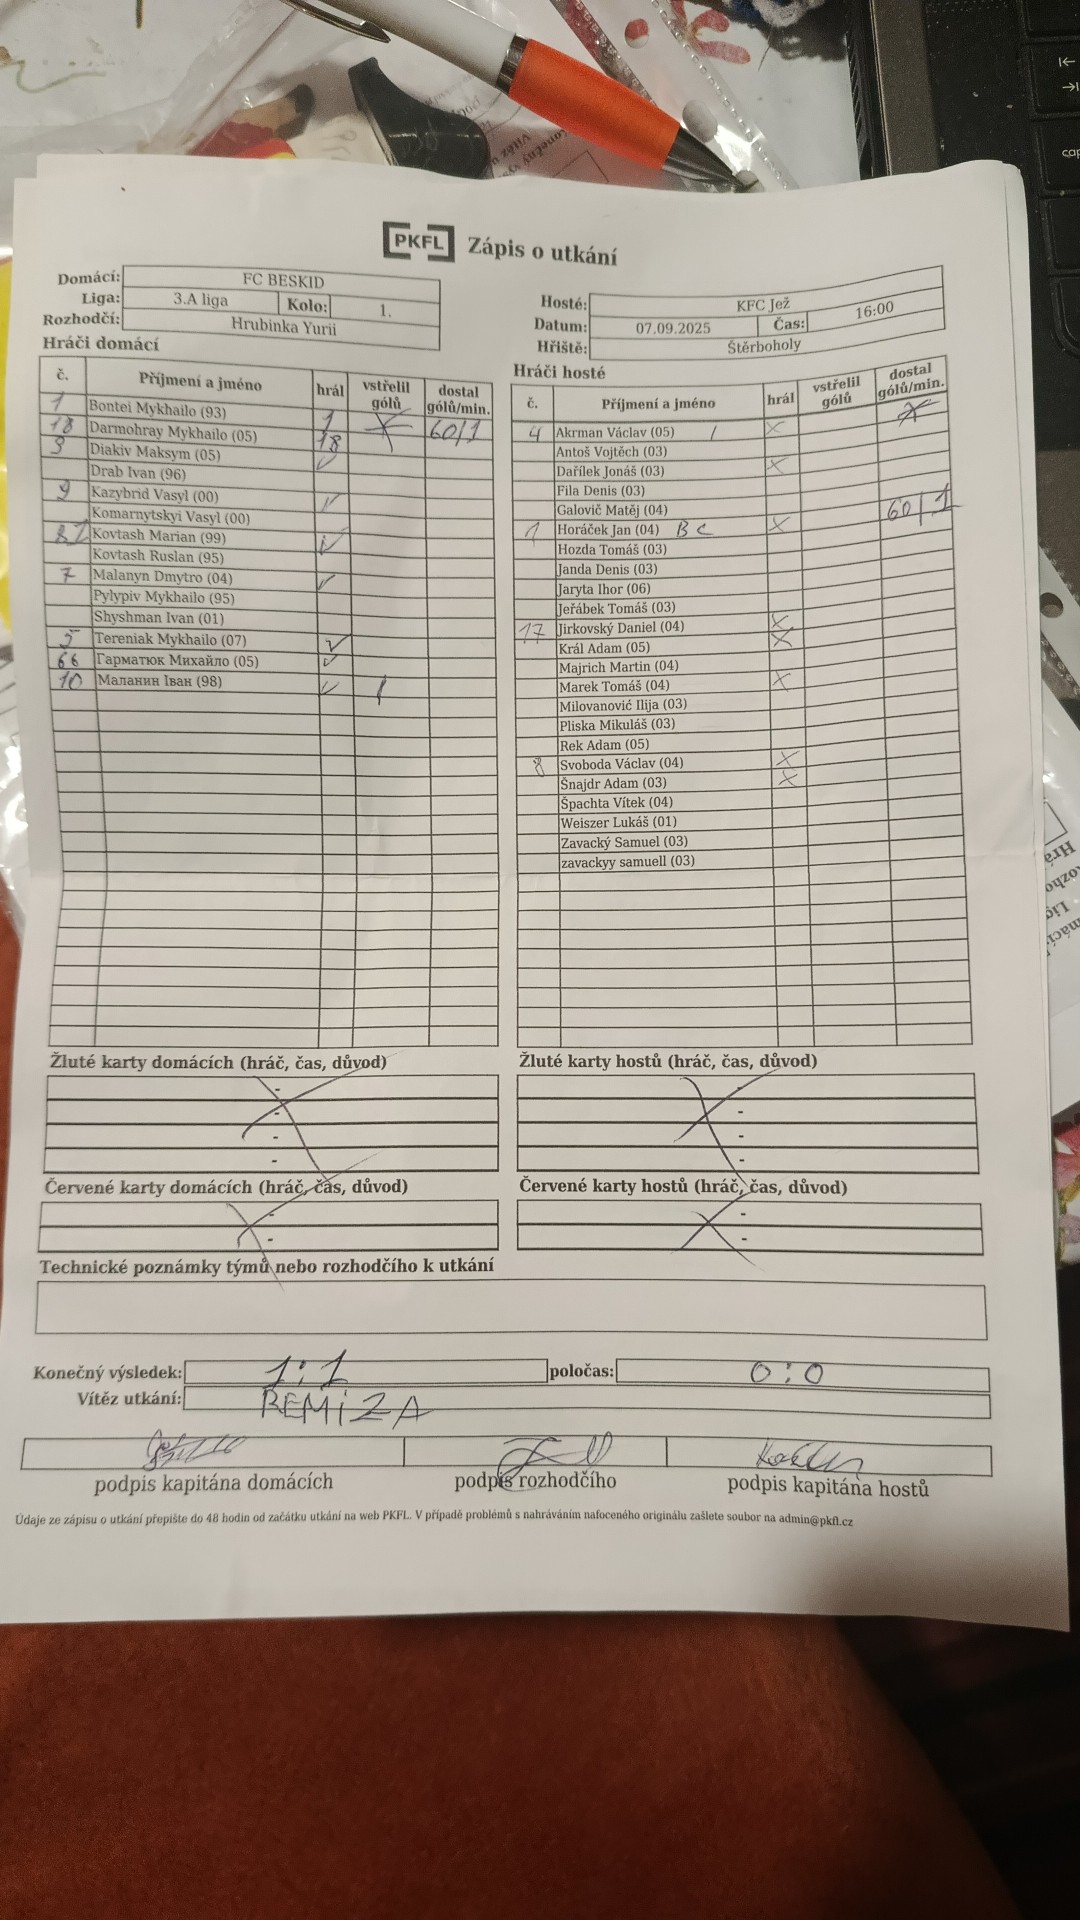 PKFL Zápis o utkání
Domácí: FC BESKID
Liga: 3.A liga Kolo: 1.
Rozhodčí: Hrubinka Yurii
Hosté: KFC Jež
Datum: 07.09.2025 Čas: 16:00
Hřiště: Štěrboholy
Hráči domácí
č. Příjmení a jméno hrál vstřelil gólů dostal gólů/min.
1 Bontei Mykhailo (93) 1
18 Darmohray Mykhailo (05) 18 60/1
3 Diakiv Maksym (05)
Drab Ivan (96)
9 Kazybrid Vasyl (00)
Komarnytskyi Vasyl (00)
Kovtash Marian (99)
Kovtash Ruslan (95)
7 Malanyn Dmytro (04)
Pylypiv Mykhailo (95)
Shyshman Ivan (01)
5 Tereniak Mykhailo (07)
66 Гарматюк Михайло (05)
10 Маланин Іван (98) 1
Hráči hosté
č. Příjmení a jméno hrál vstřelil gólů dostal gólů/min.
4 Akrman Václav (05) / X
Antoš Vojtěch (03)
Dařílek Jonáš (03) X
Fila Denis (03)
Galovič Matěj (04)
1 Horáček Jan (04) BC X 60/1
Hozda Tomáš (03)
Janda Denis (03)
Jaryta Ihor (06)
Jeřábek Tomáš (03)
17 Jirkovský Daniel (04) X
Král Adam (05) X
Majrich Martin (04)
Marek Tomáš (04) X
Milovanović Ilija (03)
Pliska Mikuláš (03)
Rek Adam (05)
8 Svoboda Václav (04) X
Šnajdr Adam (03) X
Špachta Vítek (04)
Weiszer Lukáš (01)
Zavacký Samuel (03)
zavackyy samuell (03)
Žluté karty domácích (hráč, čas, důvod)
-
-
-
-
Žluté karty hostů (hráč, čas, důvod)
-
-
-
-
Červené karty domácích (hráč, čas, důvod)
-
-
Červené karty hostů (hráč, čas, důvod)
-
-
Technické poznámky týmů nebo rozhodčího k utkání
Konečný výsledek: 1:1 poločas: 0:0
Vítěz utkání: REMiZA
podpis kapitána domácích podpis rozhodčího podpis kapitána hostů
Údaje ze zápisu o utkání přepište do 48 hodin od začátku utkání na web PKFL. V případě problémů s nahráváním nafoceného originálu zašlete soubor na admin@pkfl.cz